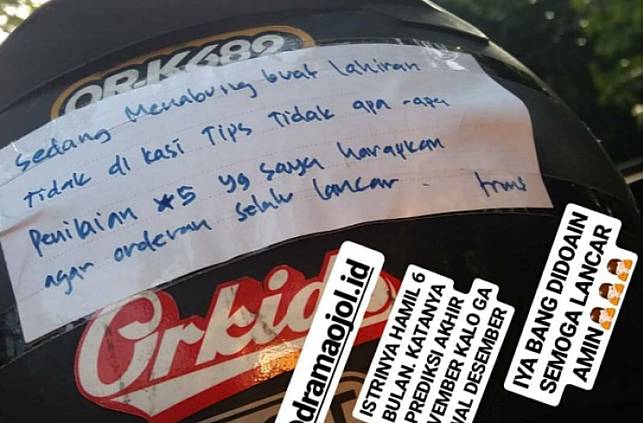 OR-K689
Sedang Menabung buat Lahiran
Tidak di kasi Tips Tidak apa-apa
Penilaian *5 yg saya harapkan
agar orderan selalu lancar. trims
Orkide
dramaojol.id
ISTRINYA HAMIL 6
BULAN. KATANYA
PREDIKSI AKHIR
VEMBER KALO GA
AL DESEMBER
IYA BANG DIDOAIN
SEMOGA LANCAR
AMIN